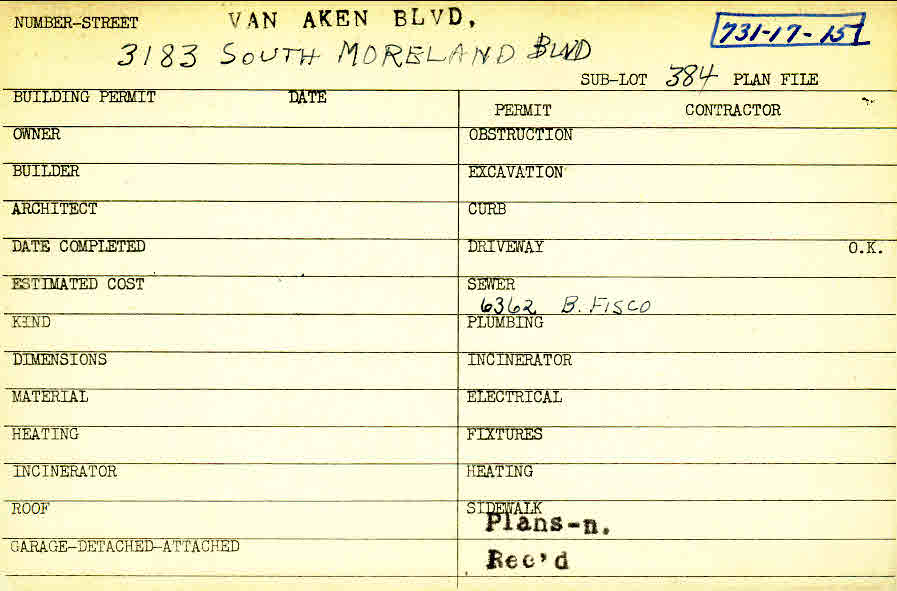 NUMBER-STREET VAN AKEN BLVD,
3183 SOUTH MORELAND BLVD
731-17-151
SUB-LOT 384 PLAN FILE
BUILDING PERMIT DATE
OWNER
BUILDER
ARCHITECT
DATE COMPLETED
ESTIMATED COST
KIND
DIMENSIONS
MATERIAL
HEATING
INCINERATOR
ROOF
GARAGE-DETACHED-ATTACHED
PERMIT CONTRACTOR
OBSTRUCTION
EXCAVATION
CURB
DRIVEWAY O.K.
SEWER
6362 B. FISCO
PLUMBING
INCINERATOR
ELECTRICAL
FIXTURES
HEATING
SIDEWALK
Plans-n.
Rec'd